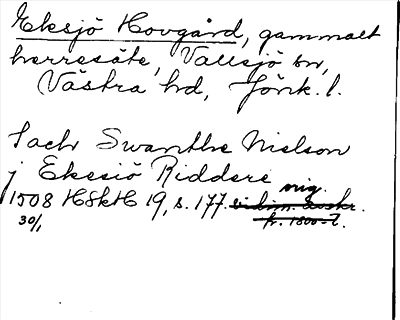 Eksjö Hovgård, gammalt
herresäte, Vallsjö sn,
Västra hd, Jönk. l.
Jach Swanthe Nielson
j Ekesiö Riddere
1508 HSkH 19, s. 177. vidim. avskr.
30/1 fr. 1500-t.